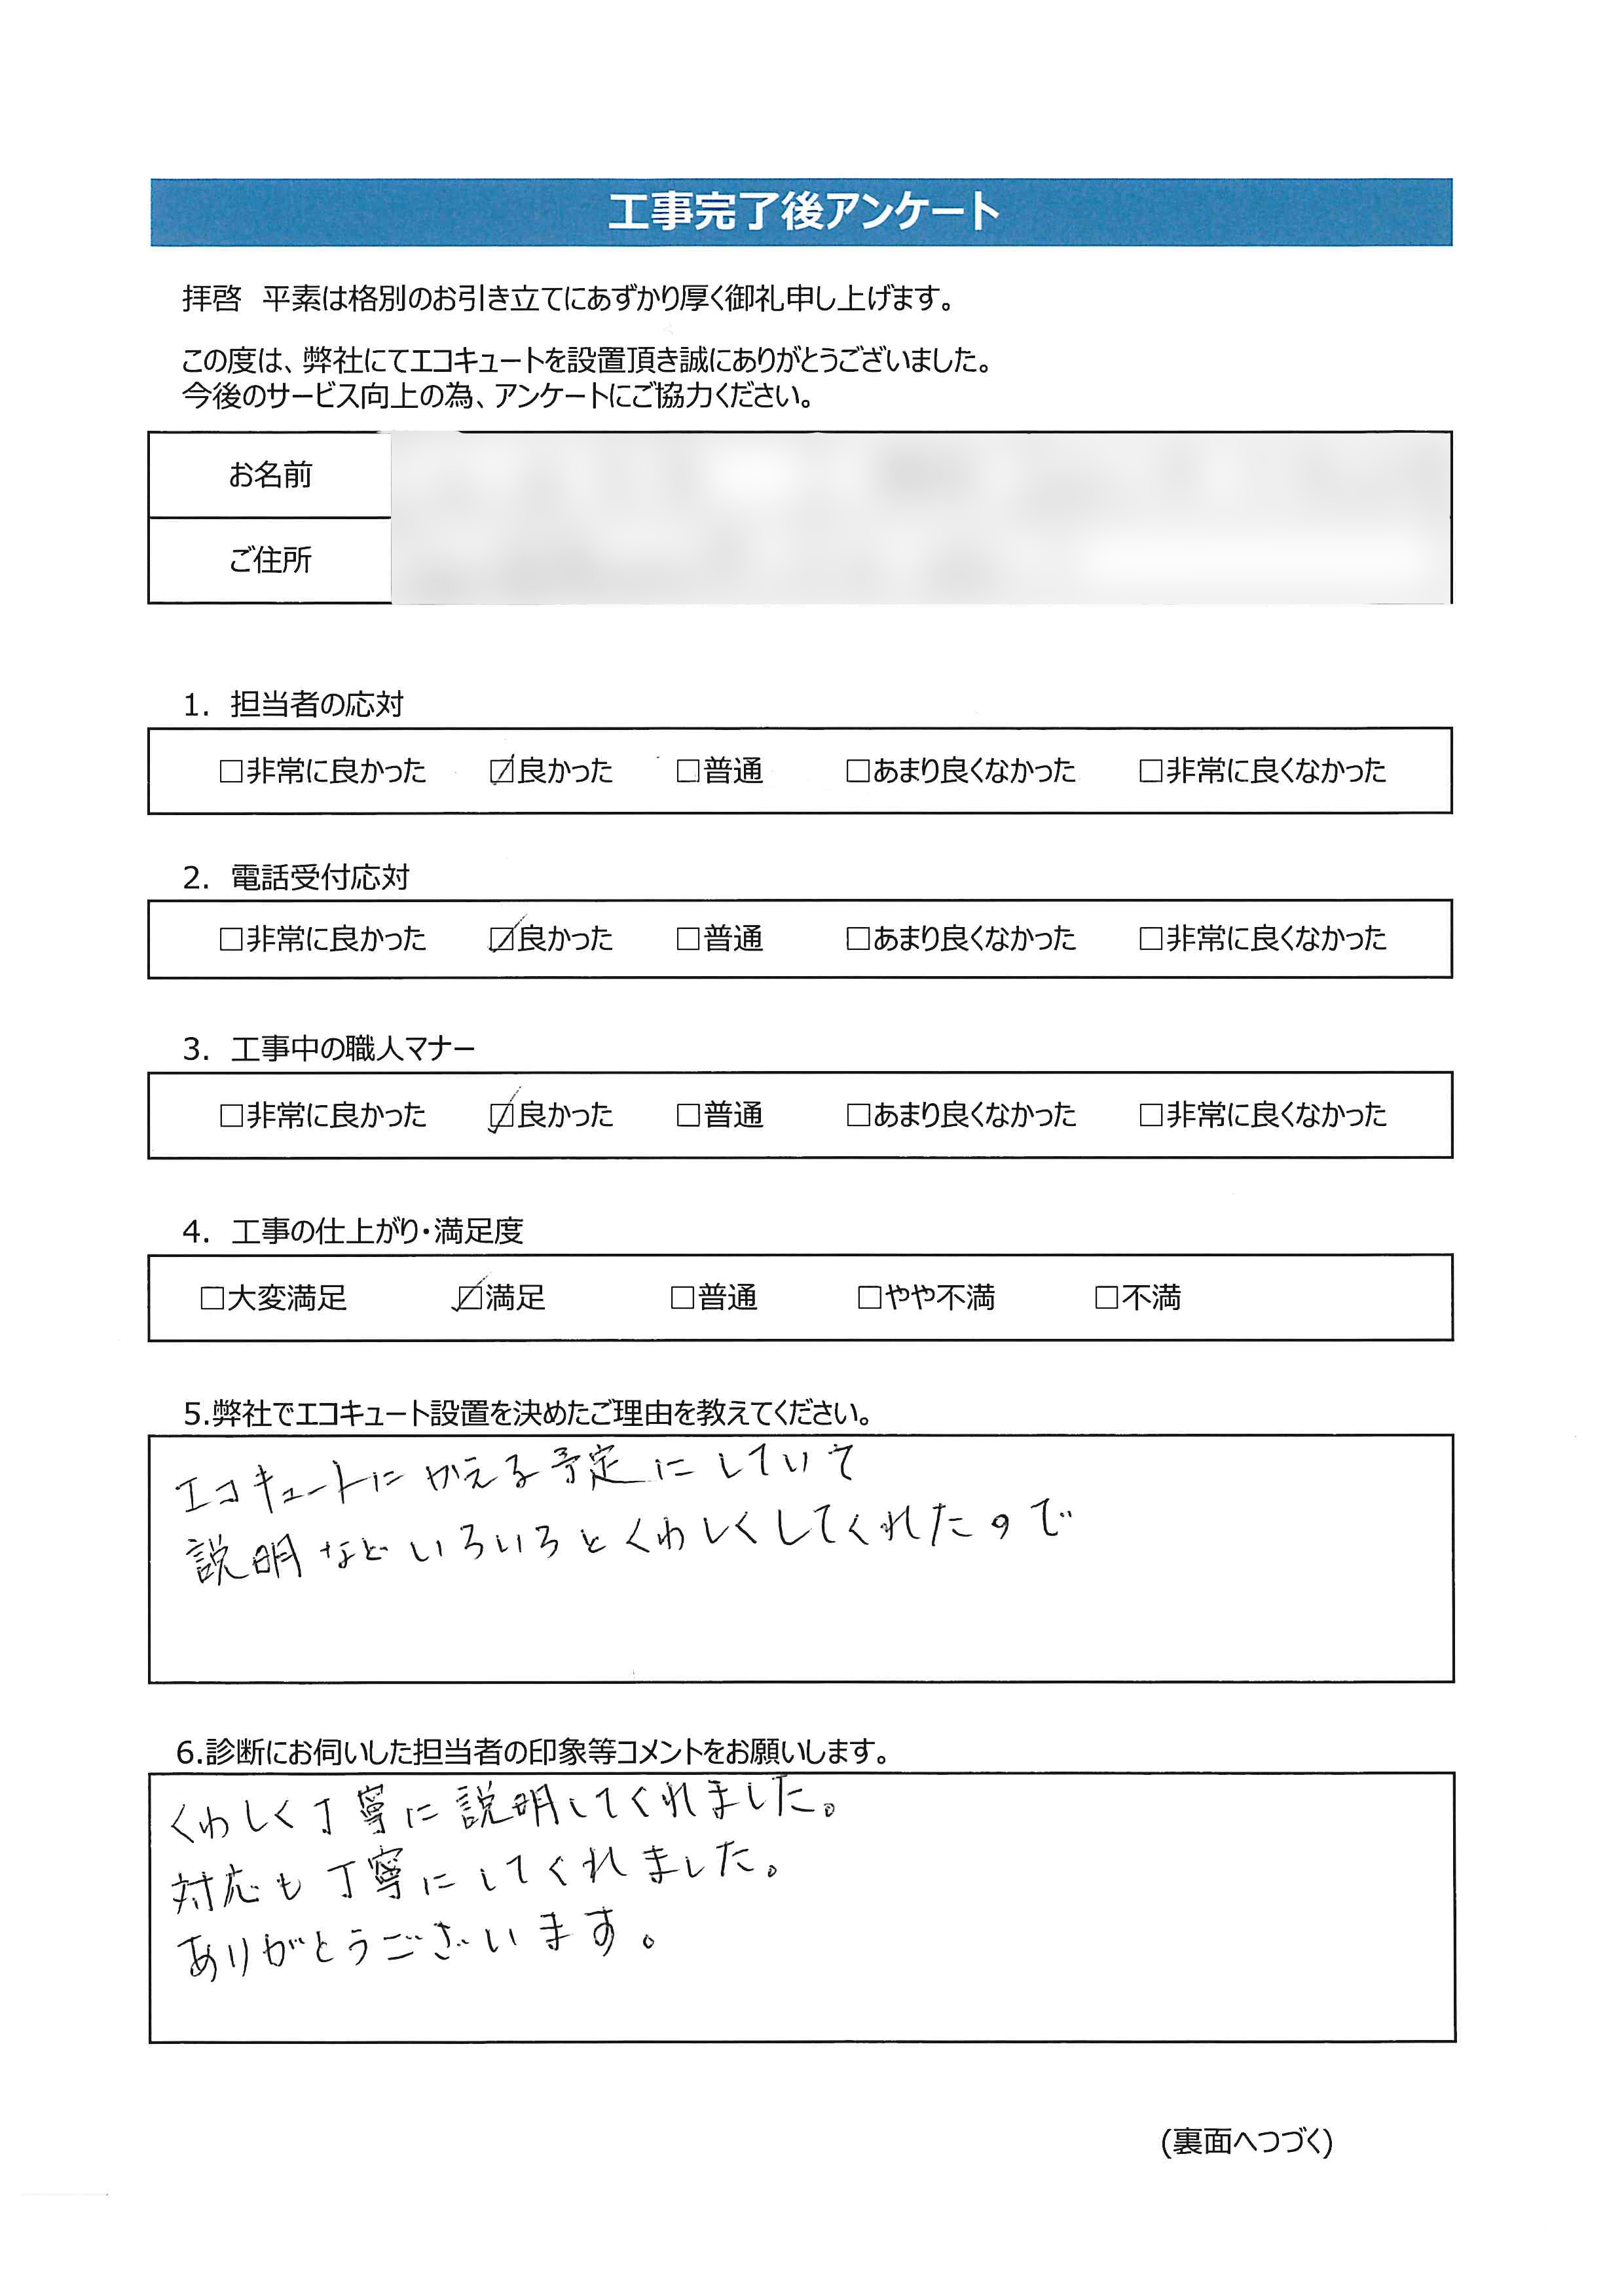 工事完了後アンケート
拝啓　平素は格別のお引き立てにあずかり厚く御礼申し上げます。
この度は、弊社にてエコキュートを設置頂き誠にありがとうございました。
今後のサービス向上の為、アンケートにご協力ください。
お名前
ご住所
1.　担当者の応対
□非常に良かった　☑良かった　□普通　□あまり良くなかった　□非常に良くなかった
2.　電話受付応対
□非常に良かった　☑良かった　□普通　□あまり良くなかった　□非常に良くなかった
3.　工事中の職人マナー
□非常に良かった　☑良かった　□普通　□あまり良くなかった　□非常に良くなかった
4.　工事の仕上がり・満足度
□大変満足　☑満足　□普通　□やや不満　□不満
5.弊社でエコキュート設置を決めたご理由を教えてください。
エコキュートにかえる予定にしていて
説明などいろいろとくわしくしてくれたので
6.診断にお伺いした担当者の印象等コメントをお願いします。
くわしく丁寧に説明してくれました。
対応も丁寧にしてくれました。
ありがとうございます。
(裏面へつづく)